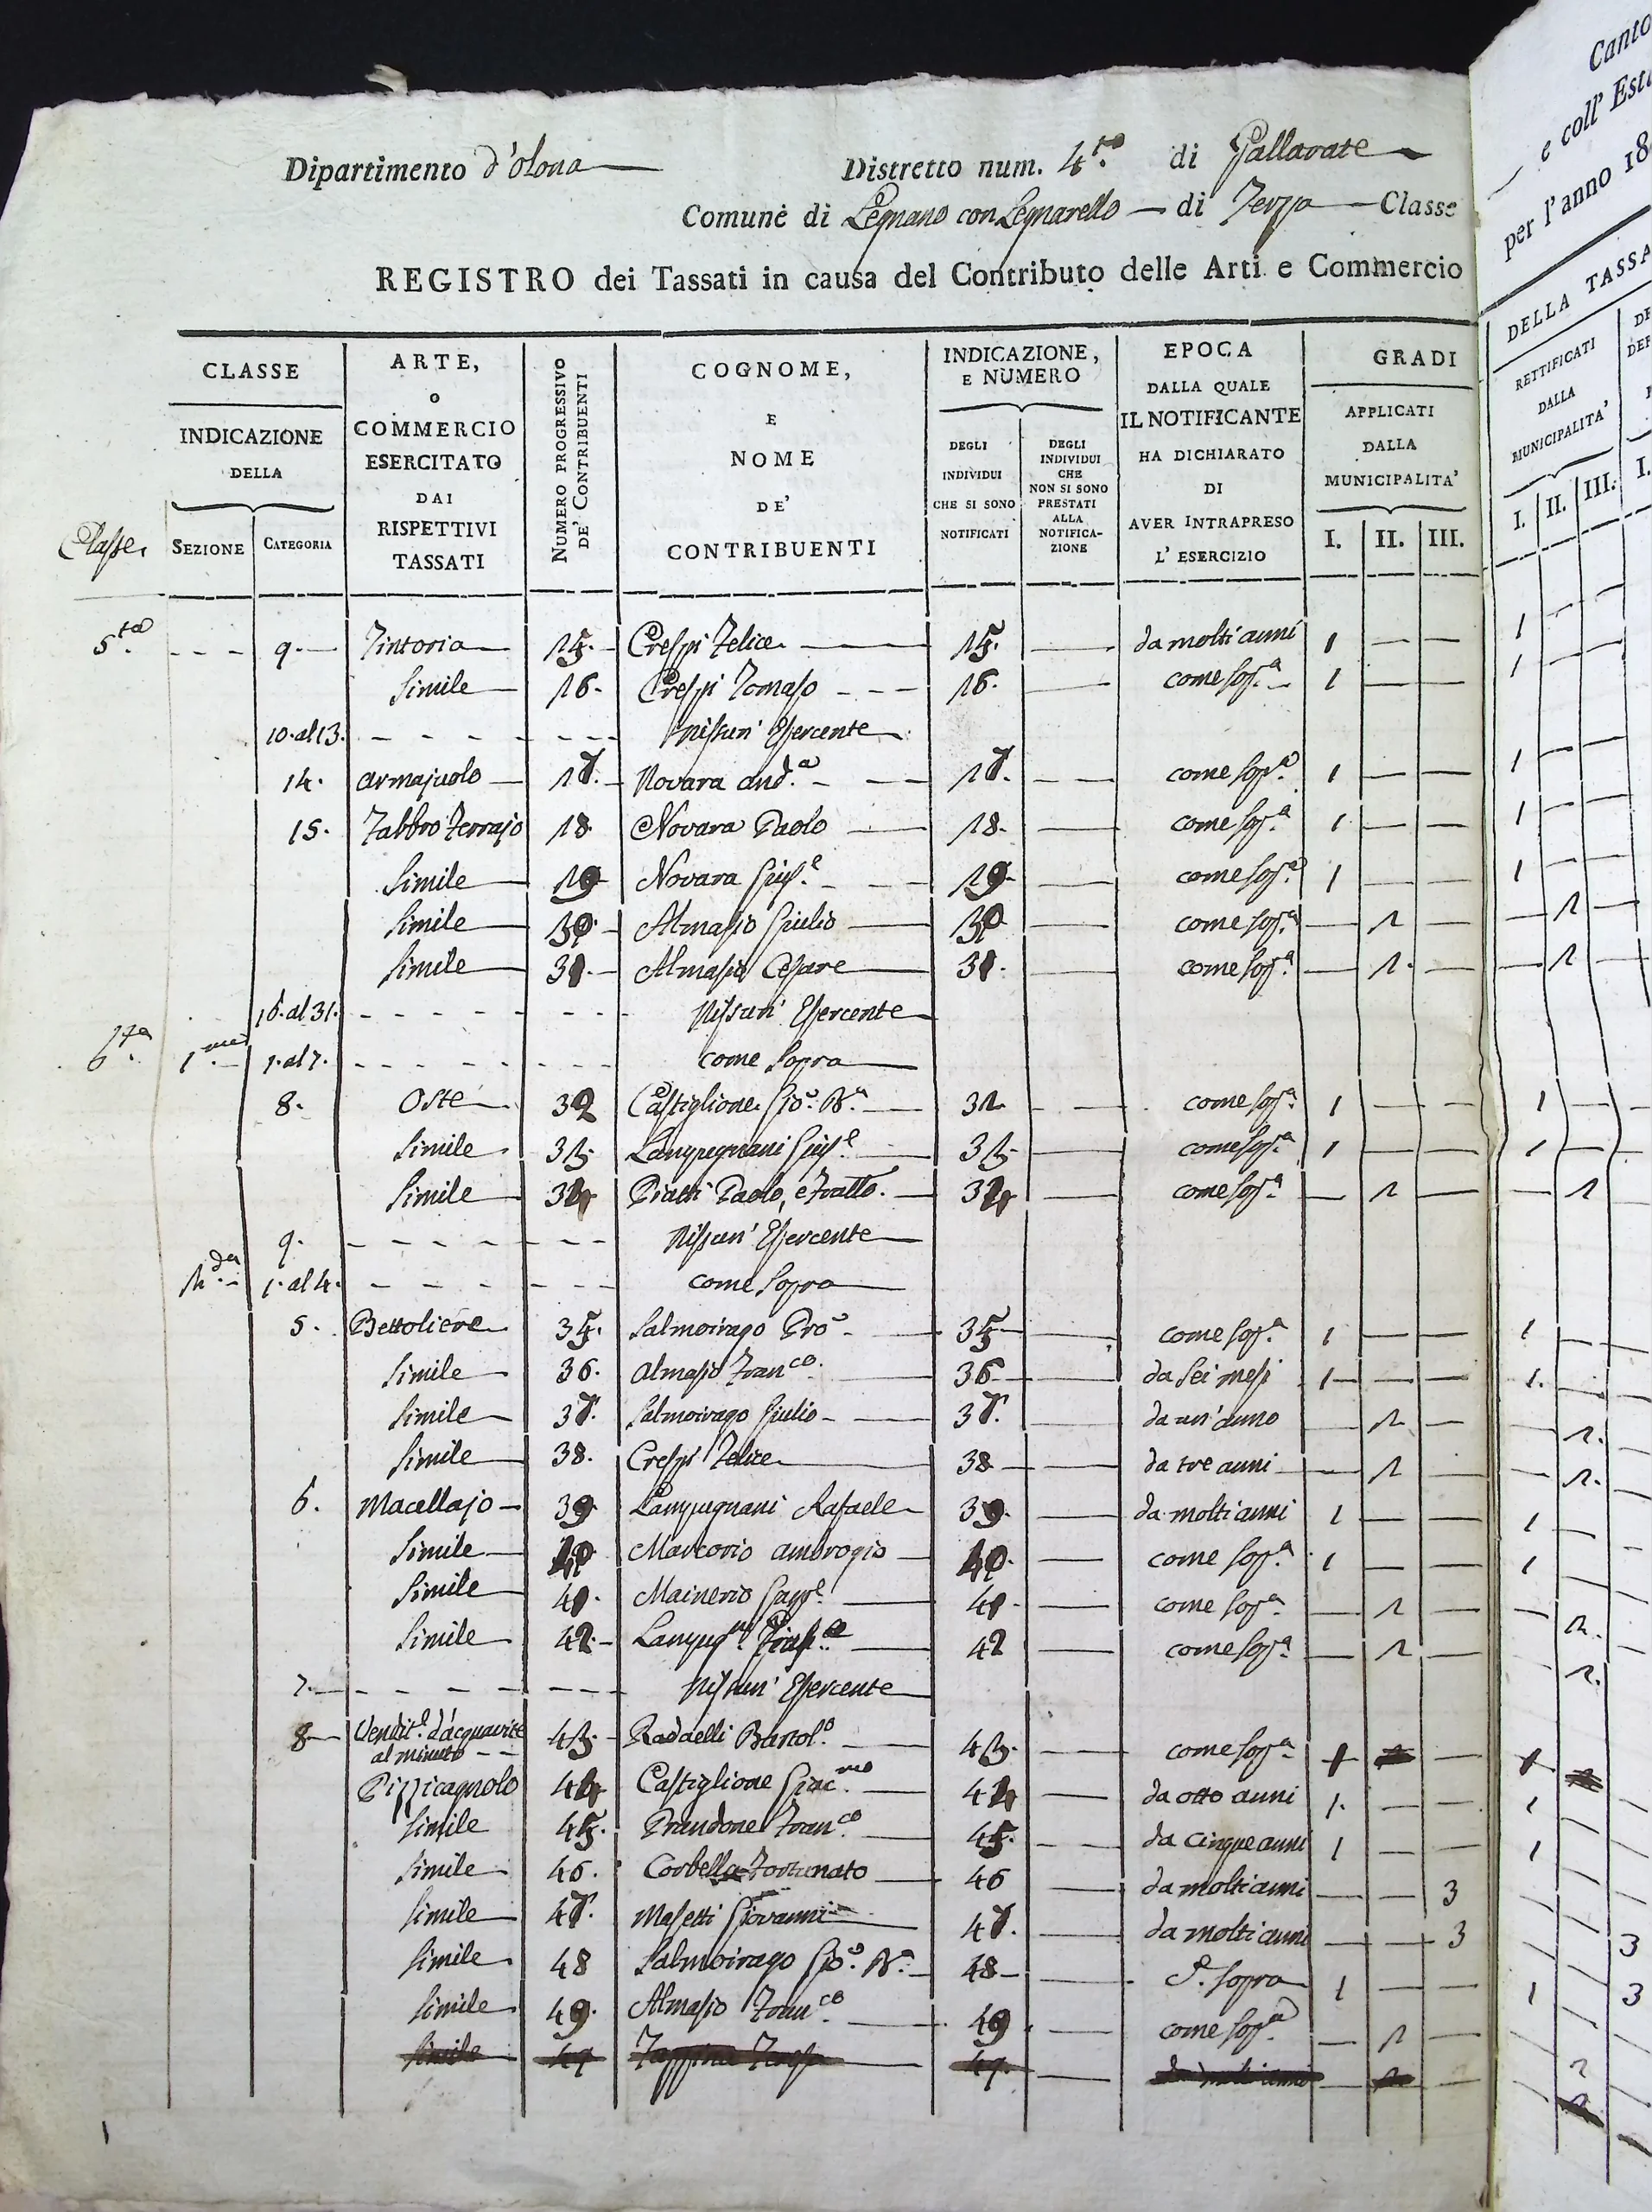 Dipartimento d'Olona Distretto num. 4.to di Gallarate
Comune di Legnano con Legnarello di Terza Classe
REGISTRO dei Tassati in causa del Contributo delle Arti e Commercio
CLASSE
INDICAZIONE
DELLA
Classe SEZIONE CATEGORIA
ARTE,
O
COMMERCIO
ESERCITATO
DAI
RISPETTIVI
TASSATI
NUMERO PROGRESSIVO
DE' CONTRIBUENTI
COGNOME,
E
NOME
DE'
CONTRIBUENTI
INDICAZIONE,
E NUMERO
DEGLI
INDIVIDUI
CHE SI SONO
NOTIFICATI
DEGLI
INDIVIDUI
CHE
NON SI SONO
PRESTATI
ALLA
NOTIFICA-
ZIONE
EPOCA
DALLA QUALE
IL NOTIFICANTE
HA DICHIARATO
DI
AVER INTRAPRESO
L'ESERCIZIO
GRADI
APPLICATI
DALLA
MUNICIPALITA'
I. II. III.
5.ta - - - 9. Tintoria 25. Crespi Felice 25. da molti anni 1 — —
Simile 26. Crespi Tomaso 26. come sop.a 1 — —
10. al 13. nissun' Esercente
14. armajuolo 27. Novara And.a 27. come sop.a 1 — —
15. Fabbro Ferrajo 28. Novara Paolo 28. come sop.a 1 — —
Simile 29 Novara Giuse.e 29. come sop.a 1 — —
Simile 30. Almasio Giulio 30 come sop.a — 2 —
Simile 31. Almasio Cesare 31. come sop.a — 2. —
16. al 31. Nissun' Esercente
6.ta 1.ma 1. al 7. come sopra
8. Oste 32 Castiglione Gio. B.a 32 come sop.a 1 — —
Simile 33. Lampugnani Gius.e 33. come sop.a 1 — —
Simile 34 Piatti Paolo, e Fratto. 34 come sop.a — 2 —
9. Nissun' Esercente
2.da 1. al 4. come sopra
5. Bettoliere 35. Salmoirago Pro 35 come sop.a 1 — —
Simile 36. Almasio Fran.co 36 da sei mesi 1 — —
Simile 37. Salmoirago Giulio 37. da un' anno 2 —
Simile 38. Crespi Felice 38 da tre anni — 2 —
6. Macellajo 39 Lampugnani Rafaele 39. da molti anni 1 — —
Simile 40 Marcorio Ambrogio 40. come sop.a 1 — —
Simile 41. Mainerio 41. come sop.a — 2 —
Simile 42. Lampug.ni 42 come sop.a — 2 —
7. Nissun' Esercente
8 Vendit.e d'acquavite
al minuto 43. Radaelli Bartol.o 43. come sop.a 1 —
Pizzicagnolo 44 Castiglione Giac.mo 44 da otto anni 1. — —
Simile 45. Prandone Fran.co 45. da Cinque anni 1 — —
Simile 46. Corbella Fortunato 46 da molti anni — — 3
Simile 47. Masetti Giovanni 47. da molti anni — — 3
Simile 48 Salmoirago Gio. B.a 48 C. sopra 1 — —
Simile 49. Almasio Fran.co 49 come sop.a — 2 —
Canto
e coll' Est
per l'anno 18
DELLA TASSA
RETTIFICATI
DALLA
MUNICIPALITA'
I. II. III. I.